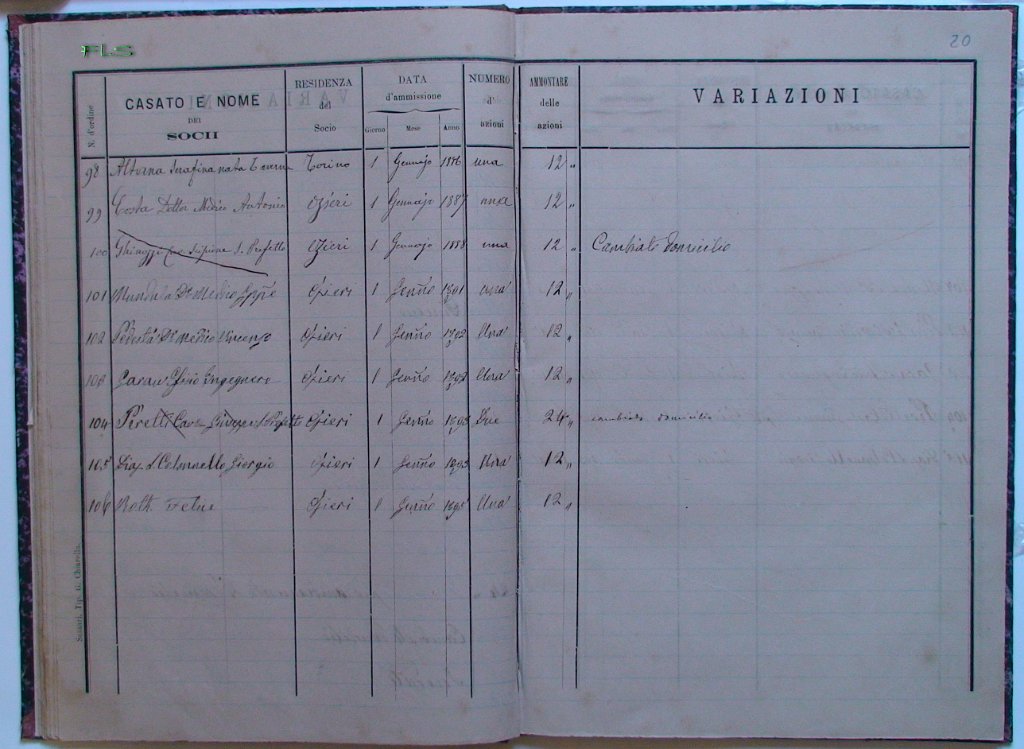 FLS
20
N. d'ordine
CASATO E NOME
DEI
SOCII
RESIDENZA
del
Socio
DATA
d'ammissione
Giorno Mese Anno
NUMERO
d'
azioni
AMMONTARE
delle
azioni
VARIAZIONI
98 Altorna Serafina nata Torino 1 Gennajo 1886 una 12 "
99 Costa Dottor Medico Antonio Ozieri 1 Gennajo 1887 una 12 "
100 Scipione S. Prefetto Ozieri 1 Gennajo 1888 una 12 " Cambiato Domicilio
101 Dr Medico Ozieri 1 Genn̄o 1901 una 12 "
102 Dr Medico Vincenzo Ozieri 1 Genn̄o 1902 Una 12 "
103 Garau Ingegnere Ozieri 1 Genn̄o 1902 Una 12 "
104 Piretti Cav. Ozieri 1 Genn̄o 1903 Due 24 " cambiato domicilio
105 Giorgio Ozieri 1 Genn̄o 1903 Una 12 "
106 Roth Ozieri 1 Genn̄o Una 12 "
Sassari, Tip. G. Chiarella